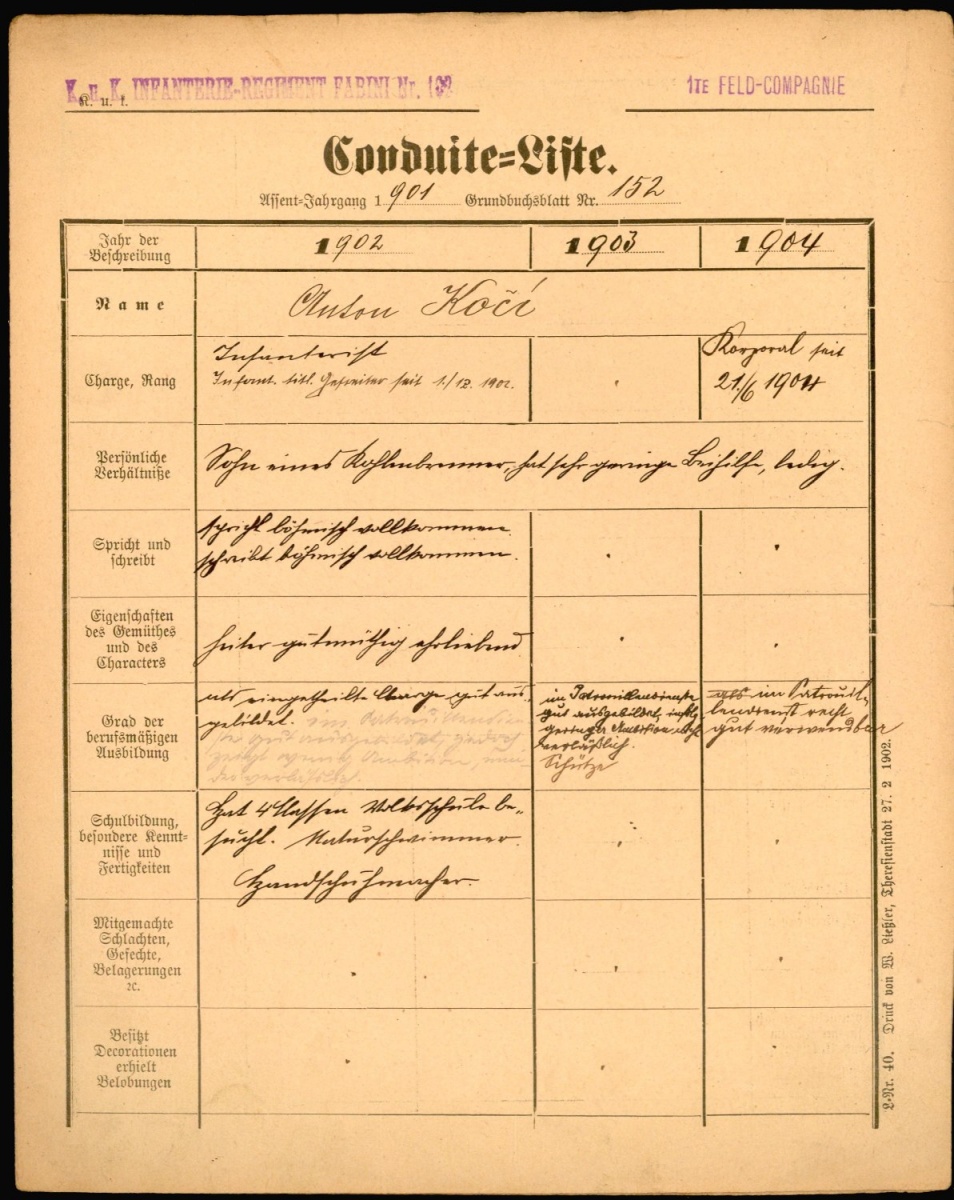 K. u. K. INFANTERIE-REGIMENT FABINI Nr. 102
1TE FELD-COMPAGNIE
K. u. k.
Conduite-Liste.
Assent-Jahrgang 1901 Grundbuchsblatt Nr. 152
Jahr der
Beschreibung
1902
1903
1904
Name
Anton Kočí
Charge, Rang
Infanterist
Infant. titl. Gefreiter seit 1./12. 1902.
Korporal seit
21./6 1904
Persönliche
Verhältniße
Sohn eines Kohlenbrenner, hat sehr geringe Beihilfe, ledig.
Spricht und
schreibt
spricht böhmisch vollkommen
schreibt böhmisch vollkommen.
Eigenschaften
des Gemüthes
und des
Characters
heiter gutmüthig ehrliebend
Grad der
berufsmäßigen
Ausbildung
als eingetheilte Charge gut aus-
gebildet. im Patrouillendien-
ste gut ausgebildet, jedoch
zeigt wenig Ambition, min-
der verläßlich.
im Patrouillendienste
gut ausgebildet,
geringer Ambition,
verläßlich.
Schütze
als im Patrouil-
lendienst recht
gut verwendbar
Schulbildung,
besondere Kennt-
nisse und
Fertigkeiten
Hat 4 Classen Volksschule be-
sucht. Naturschwimmer.
Handschuhmacher.
Mitgemachte
Schlachten,
Gefechte,
Belagerungen
ꝛc.
Besitzt
Decorationen
erhielt
Belobungen
L-Nr. 40. Druck von W. Ließler, Theresienstadt 27. 2 1902.